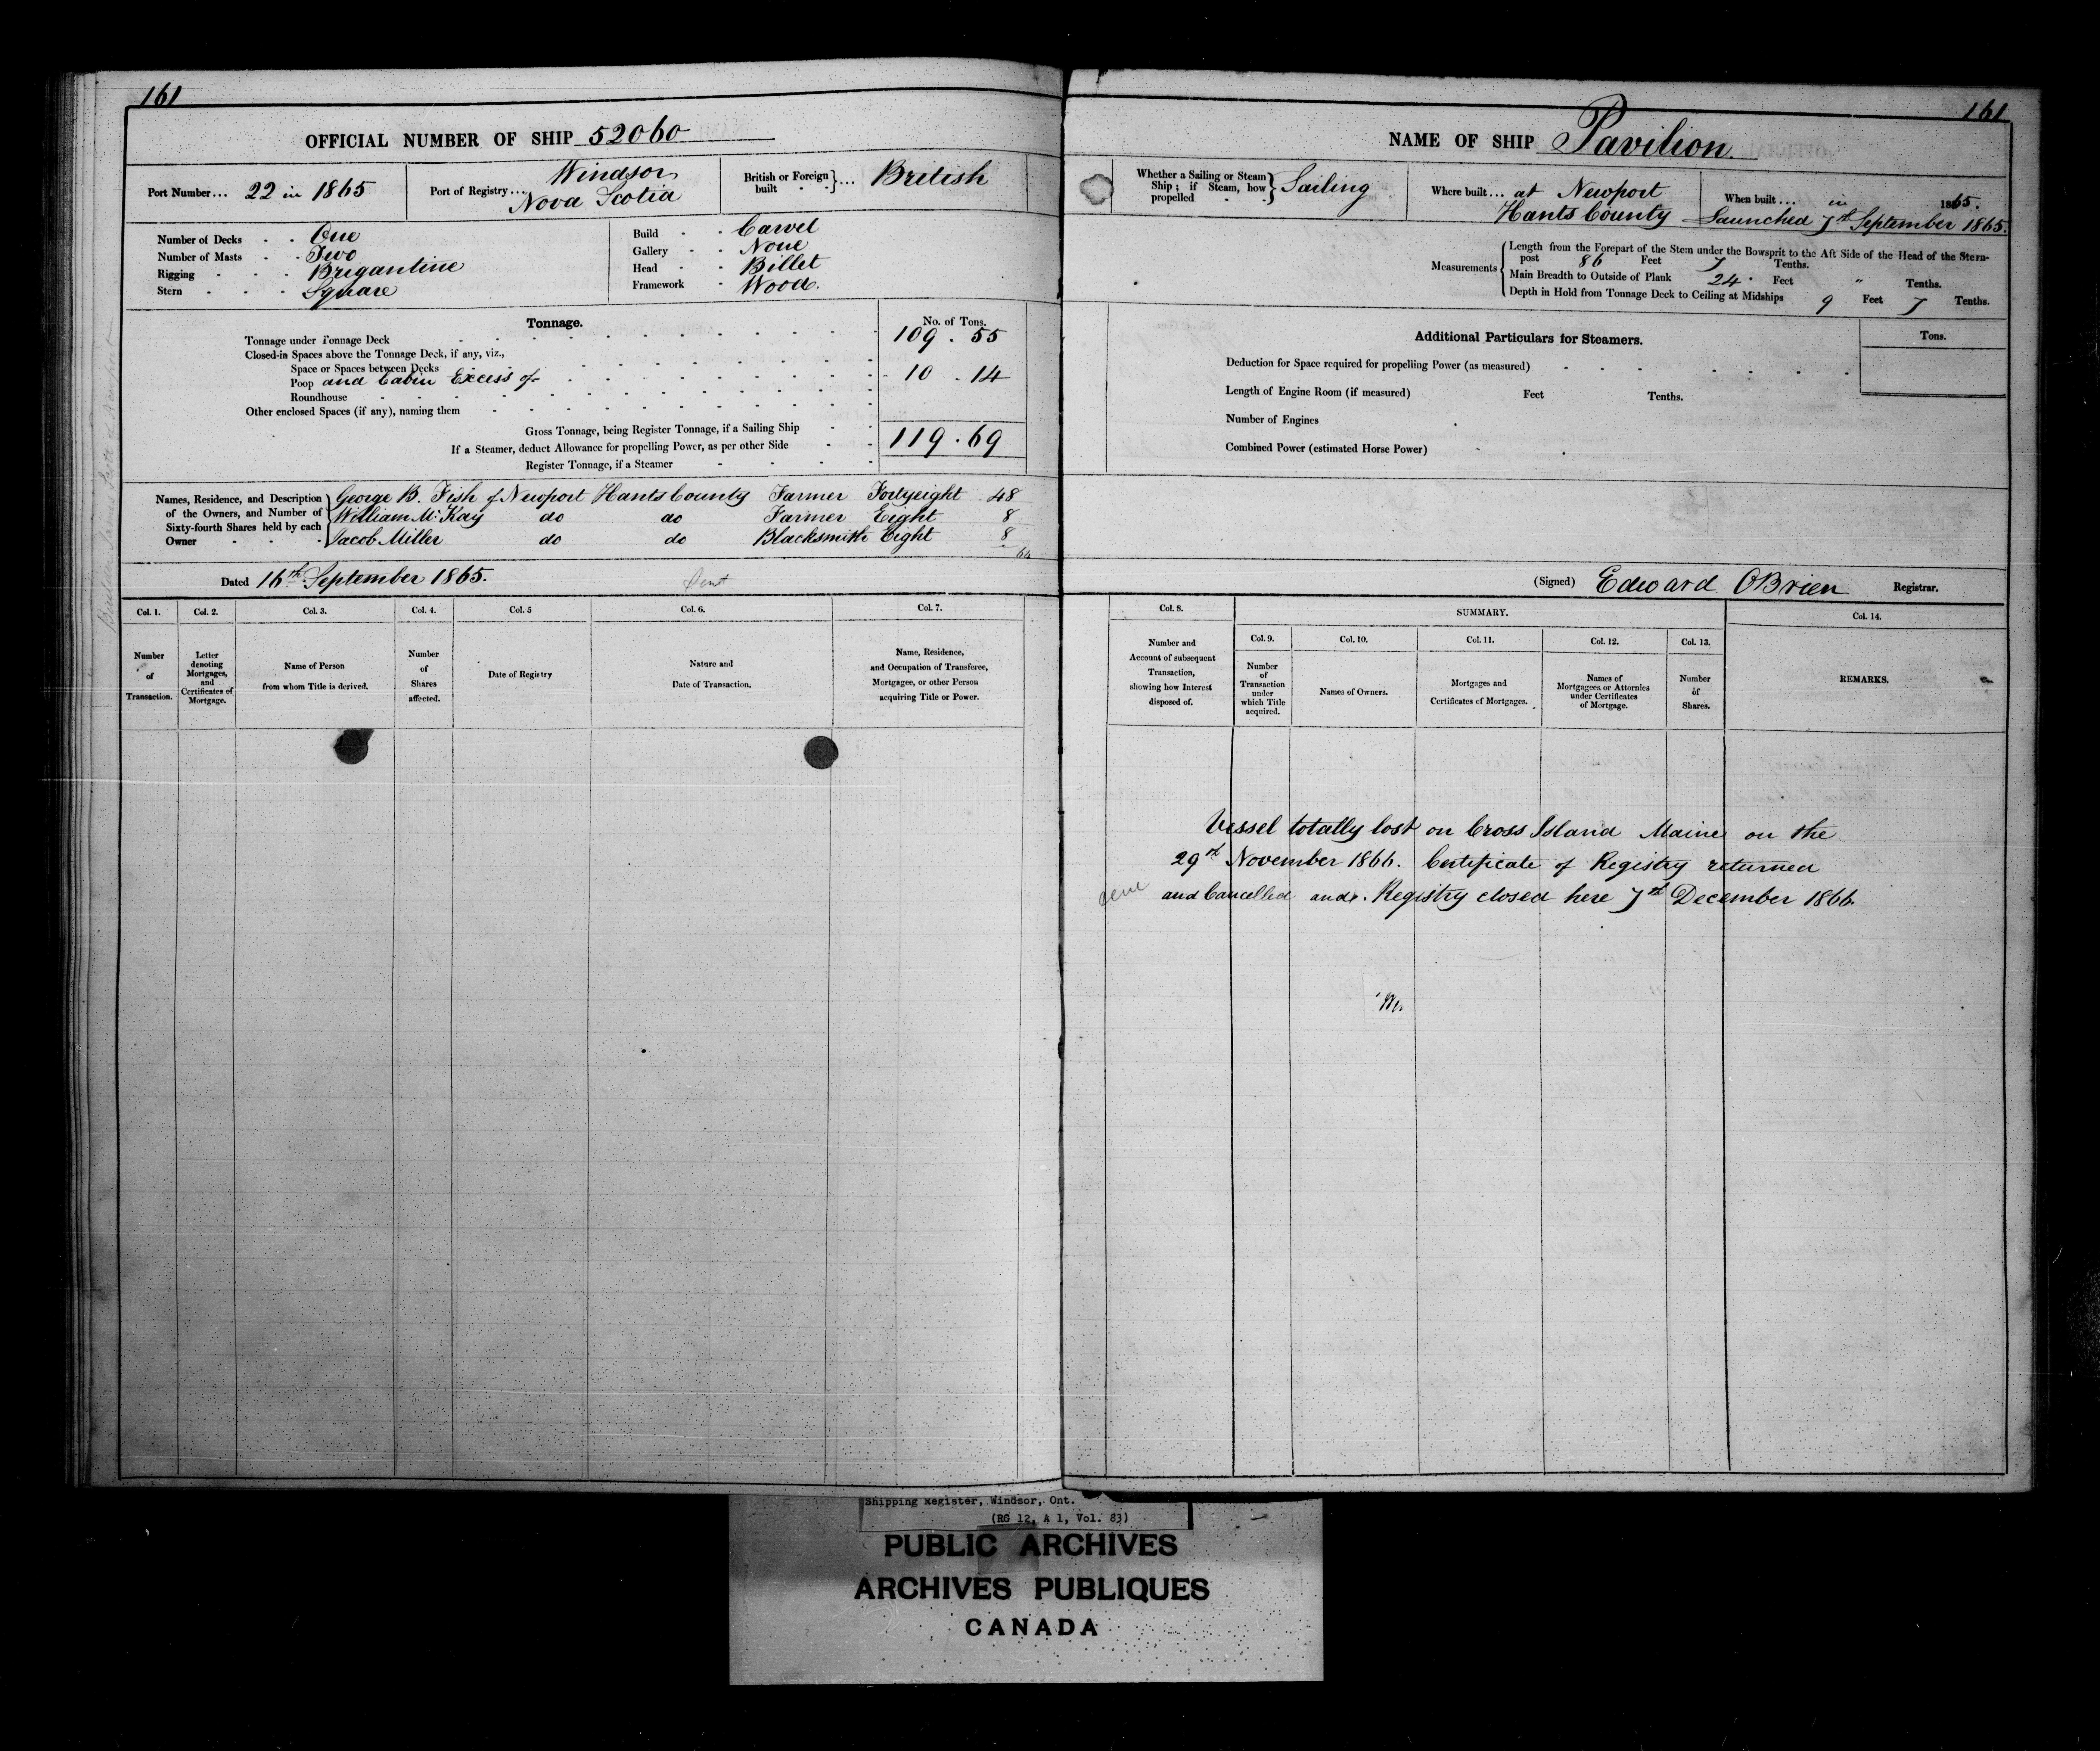 161
OFFICIAL NUMBER OF SHIP 52060
Port Number... 22 in 1865
Port of Registry... Windsor
Nova Scotia
British or Foreign built } ... British
Number of Decks - - One
Number of Masts - - Two
Rigging - - - Brigantine
Stern - - - Square
Build - - Carvel
Gallery - - None
Head - - Billet
Framework - Wood.
Tonnage.
No. of Tons.
Tonnage under Tonnage Deck 109 . 55
Closed-in Spaces above the Tonnage Deck, if any, viz.,
Space or Spaces between Decks
Poop and Cabin Excess of 10 . 14
Roundhouse
Other enclosed Spaces (if any), naming them
Gross Tonnage, being Register Tonnage, if a Sailing Ship
119 . 69
If a Steamer, deduct Allowance for propelling Power, as per other Side
Register Tonnage, if a Steamer
Names, Residence, and Description of the Owners, and Number of Sixty-fourth Shares held by each Owner
George B. Fish of Newport Hants County Farmer Fortyeight 48
William McKay do do Farmer Eight 8
Jacob Miller do do Blacksmith Eight 8
64
Dated 16th September 1865.
Col. 1. Col. 2. Col. 3. Col. 4. Col. 5 Col. 6. Col. 7.
Number of Transaction.
Letter denoting Mortgages, and Certificates of Mortgage.
Name of Person from whom Title is derived.
Number of Shares affected.
Date of Registry
Nature and Date of Transaction.
Name, Residence, and Occupation of Transferee, Mortgagee, or other Person acquiring Title or Power.
161
NAME OF SHIP Pavilion.
Whether a Sailing or Steam Ship; if Steam, how propelled } Sailing
Where built... at Newport
Hants County
When built... in 1865.
Launched 7th September 1865.
Measurements
Length from the Forepart of the Stem under the Bowsprit to the Aft Side of the Head of the Stern-
post 86 Feet 7 Tenths.
Main Breadth to Outside of Plank 24 Feet " Tenths.
Depth in Hold from Tonnage Deck to Ceiling at Midships 9 Feet 7 Tenths.
Additional Particulars for Steamers.
Tons.
Deduction for Space required for propelling Power (as measured)
Length of Engine Room (if measured) Feet Tenths.
Number of Engines
Combined Power (estimated Horse Power)
(Signed) Edward OBrien Registrar.
Col. 8.
SUMMARY.
Col. 14.
Col. 9. Col. 10. Col. 11. Col. 12. Col. 13.
Number and Account of subsequent Transaction, showing how Interest disposed of.
Number of Transaction under which Title acquired.
Names of Owners.
Mortgages and Certificates of Mortgages.
Names of Mortgagees or Attornies under Certificates of Mortgage.
Number of Shares.
REMARKS.
Vessel totally lost on Cross Island Maine on the
29th November 1866. Certificate of Registry returned
and Cancelled and Registry closed here 7th December 1866.
Shipping Register, Windsor, Ont.
(RG 12, A 1, Vol. 83)
PUBLIC ARCHIVES
ARCHIVES PUBLIQUES
CANADA